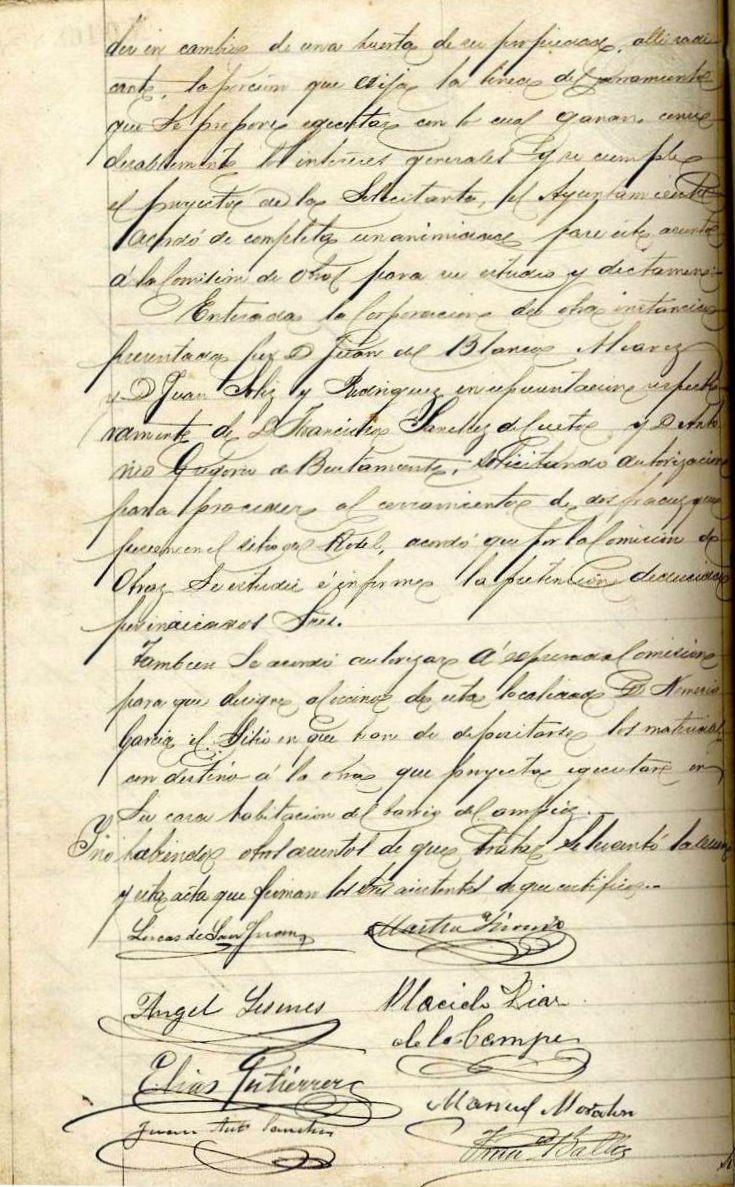 der en cambio de una huerta de su propiedad, alli radi
cante, la porcion que exija la linea de cerramiento
que se propone egecutar con lo cual ganan consi
derablemente los intereses generales y se cumple
el proyecto de la Solicitante, el Ayuntamiento
acordó de completa unanimidad pase este asunto
á la Comision de Obras para su estudio y dictamen.
Enterada la Corporacion de otra instancia
presentada por D. Juan del Blanco Alvarez
y D Juan Soliz y Rodriguez en representacion respecti
vamente de D. Francisco Sanchez del cueto y D Anto
nio de Bustamante, solicitando autorizacion
para proceder al cerramiento de dos fincas que
poseen en el sitio del acordó que por la Comision de
Obras se estudie é informe la pretension deducida
por indicados Sres.
Tambien se acordó autorizar á espresada Comision
para que designe al vecino de esta localidad D. Nemesio
Garcia el Sitio en que han de depositarse los materiales
con destino á la obra que proyecta egecutar en
Su casa habitacion del barrio del campiz.
Y no habiendo otros asuntos de que tratar se levantó la sesion
y esta acta que firman los Sres asistentes de que certifico.
Lucas de San Juan
Angel Placido Diaz
de lo Campo
Elias Gutiérrez
Manuel Morales
Juan Anto Sanchez